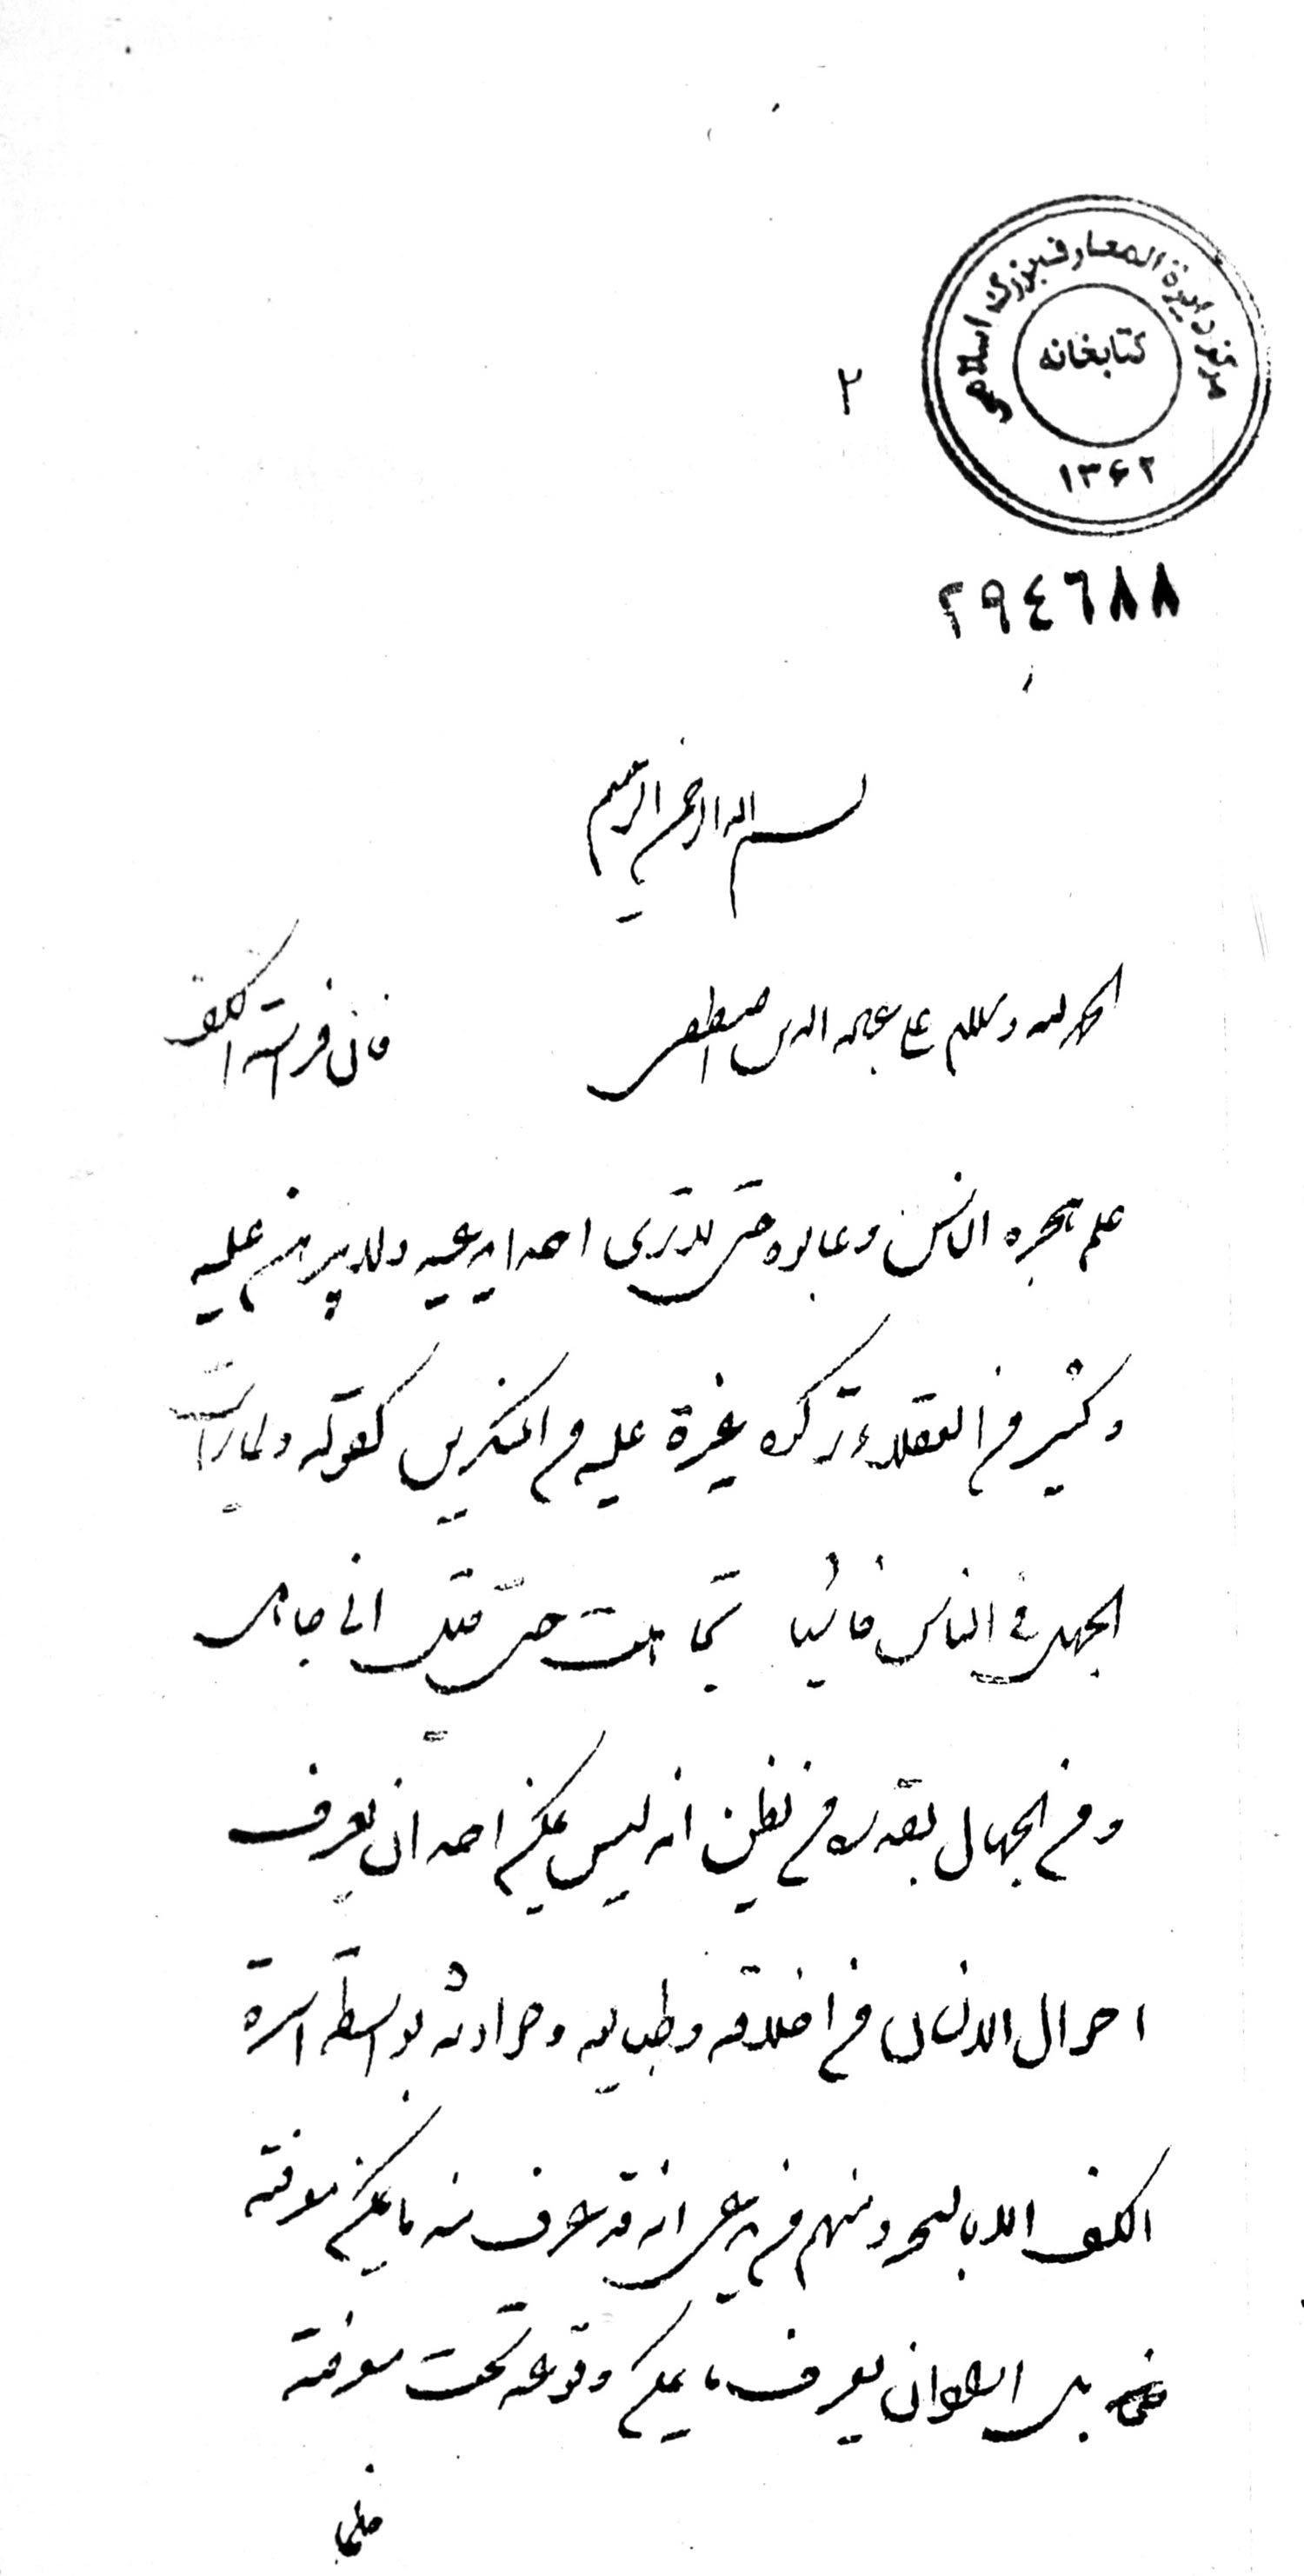 مرکز دایرة المعارف بزرگ اسلامی
کتابخانه
۱۳۶۲
۲
۲۹٤٦۸۸
بسم الله الرحمن الرحیم
الحمد لله وسلام علی عباده الذین اصطفی فان فراسة الکف
علم هجره الناس وعابوه حتی لا تری احدا یدعیه ولا یبرهن علیه
وکثیر من العقلاء ترکوه غیرة علیه من المنکرین کقوله ولما رأیت
الجهل فی الناس فاشیا تجاهلت حتی قیل انی جاهل
ومن الجهال بقدره من یظن انه لیس یمکن احد ان یعرف
احوال الانسان من اخلاقه وطبایعه وحوادثه بواسطة اسرة
الکف الا بالسحر ومنهم من یدعی انه قد عرف منه ما یمکن معرفته
بل الاولی ان یعرف ما یمکن وقوعه تحت معرفته
فلما